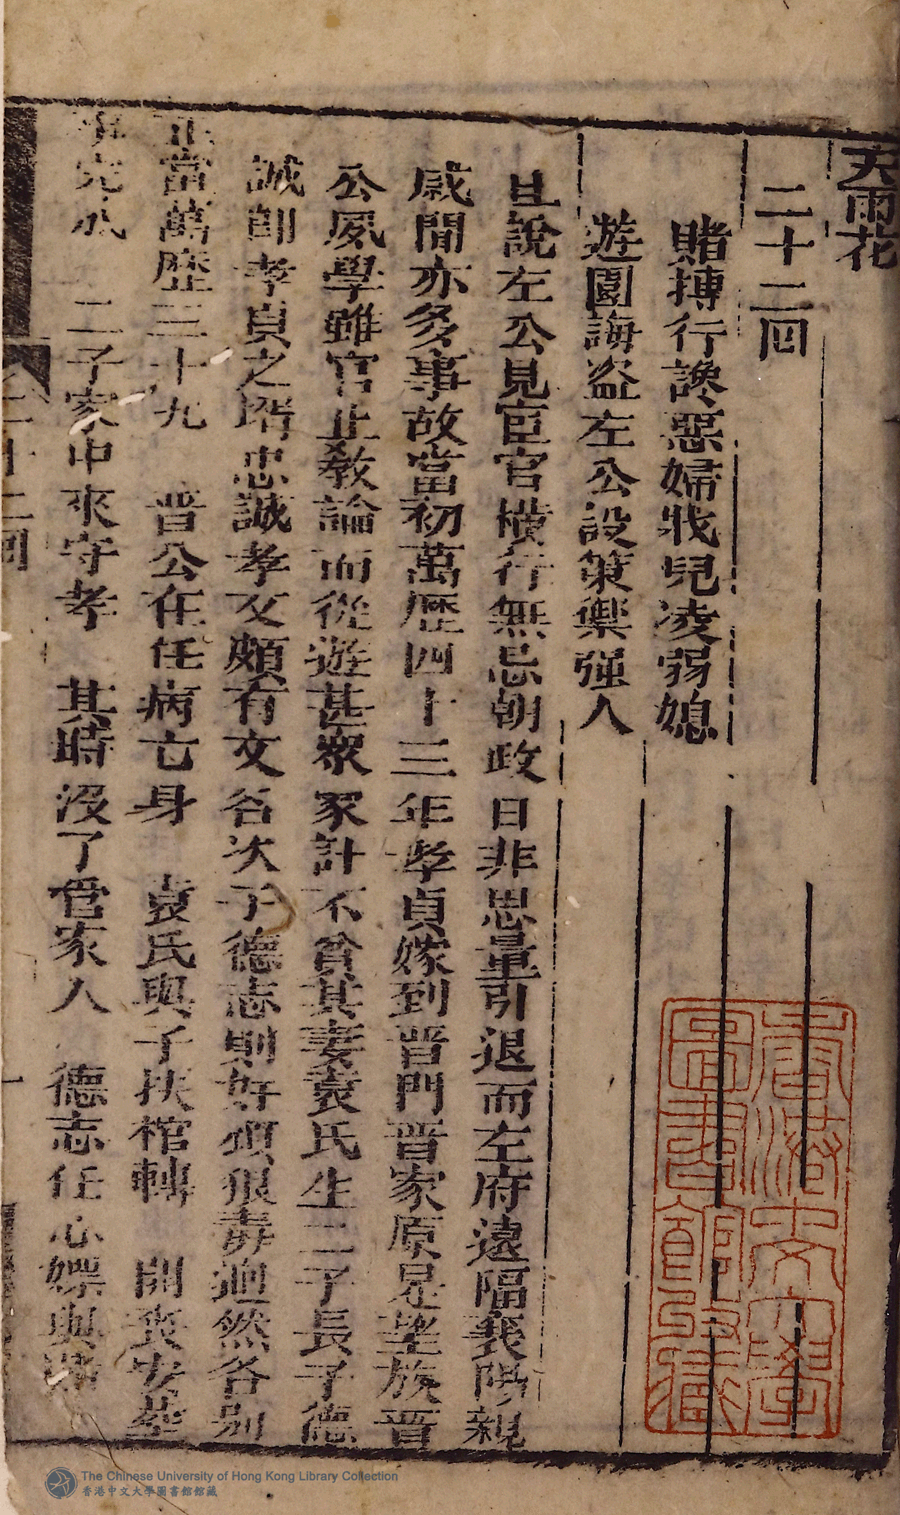 天雨花
二十二囘
賭摶行諛惡婦戕兒凌弱媳
遊園誨盗左公設策禦强人
且說左公見宦官橫行無忌朝政日非思量引退而左府遠隔襄陽親
戚間亦多事故當初萬歷四十三年孝貞嫁到晋門晋家原是望族晋
公夙學雖官止教諭而從遊甚衆家計不貧其妻袁氏生二子長子德
誠卽孝貞之壻忠誠孝友頗有文名次子德志則奸頑狠毒迥然各別
正當萬歷三十九 晋公在任病亡身 袁氏與子扶棺轉 開丧安塟
事完成 二子家中來守孝 其時没了管家人 德志任心嫖與
二十二囘
一
香港中文大學
圖書館珍藏
The Chinese University of Hong Kong Library Collection
香港中文大學圖書館館藏